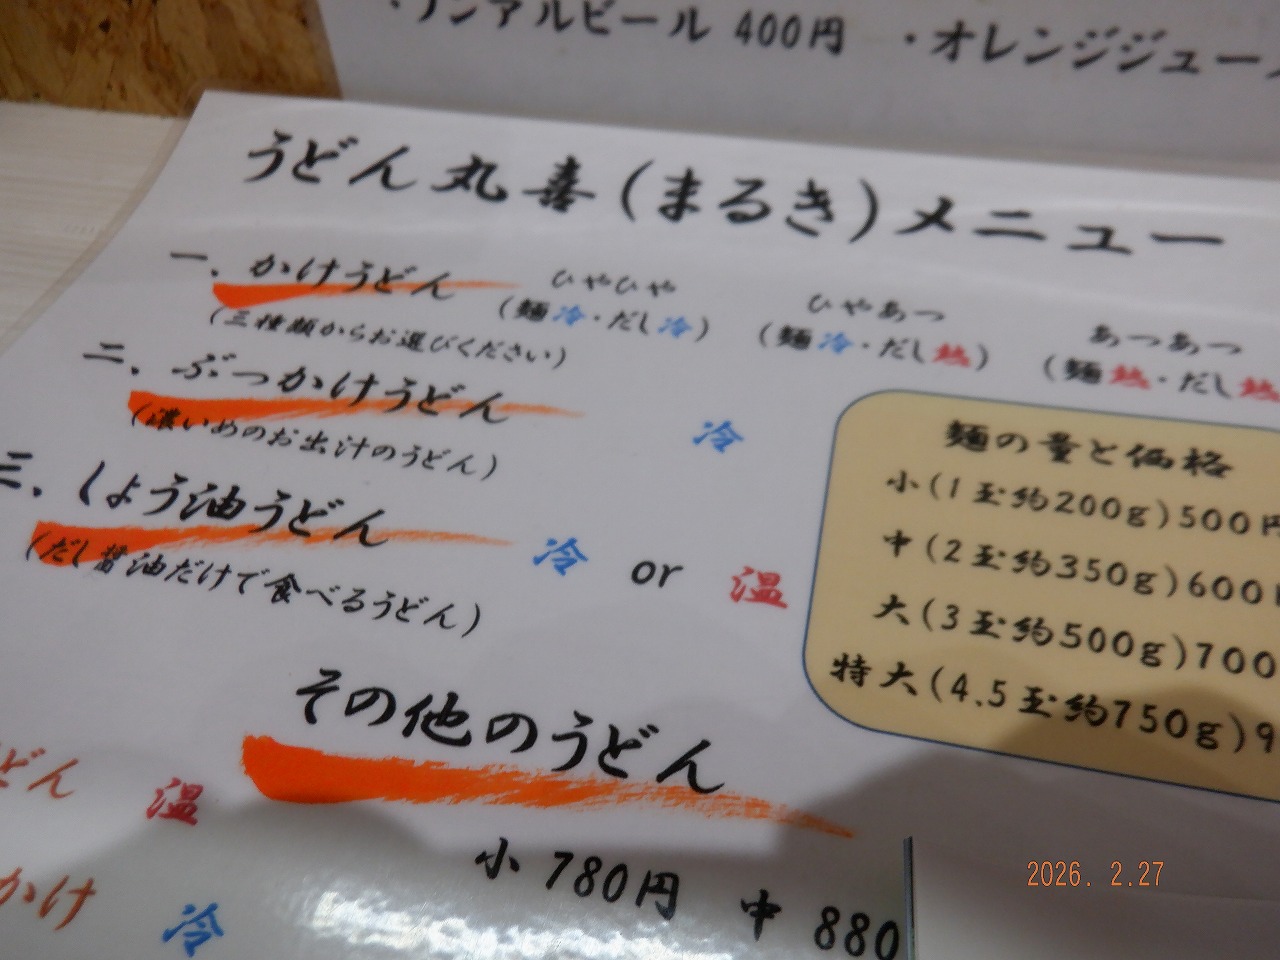 ンアルビール 400円 ・オレンジジュース
うどん 丸喜(まるき)メニュー
一. かけうどん
(三種類からお選びください)
ひやひや
(麺冷・だし冷)
ひやあつ
(麺冷・だし熱)
あつあつ
(麺熱・だし熱
二. ぶっかけうどん
(濃いめのお出汁のうどん)
冷
三. しょう油うどん
(だし醤油だけで食べるうどん)
冷 or 温
麺の量と価格
小(1玉約200g)500円
中(2玉約350g)600
大(3玉約500g)700
特大(4.5玉約750g)9
その他のうどん
どん 温
小 780円 中 880
かけ 冷
2026. 2.27